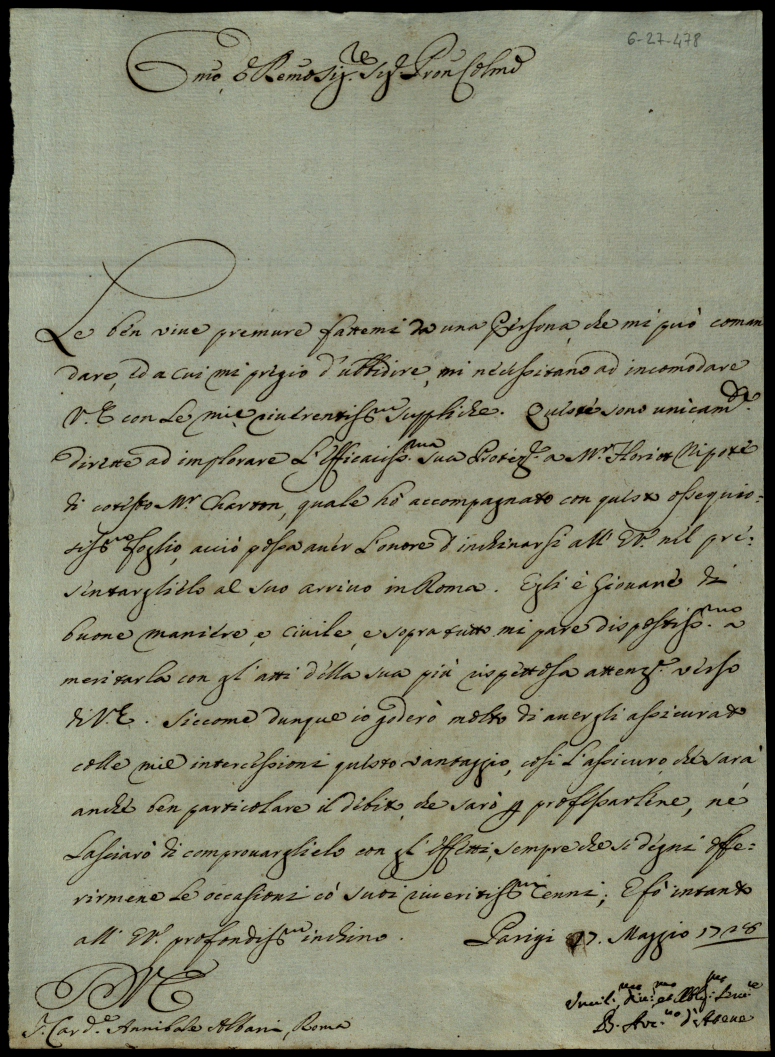 6-27-478
Emo, e Rmo Sig.re Sig.r Pron Colmo
Le ben vive premure fattemi da una Persona, che mi può coman
dare, ed a cui mi pregio d'ubbidire, mi necessitano ad incomodare
V.E con le mie riverentiss.me suppliche. Queste sono unicam.te
dirette ad implorare l'efficaciss.ma sua Protez.e a Mr. Nipote
di cotesto Mr Charton, quale hò accompagnato con questo ossequio-
siss.mo foglio, acciò possa aver l'onore d'inchinarsi all' E.V. nel pre-
sentarglielo al suo arrivo in Roma. Egli è Giovane di
buone maniere, e civile, e sopra tutto mi pare dispostiss.mo a
meritarla con gl'atti della sua più rispettosa attenz.e verso
di V.E. Siccome dunque io goderò molto di avergli assicurato
colle mie intercessioni questo vantaggio, così l'assicuro che sarà
anche ben particolare il debito, che sarò p professarlene, né
lasciarò di comprovarglielo con gl'effetti, sempre che si degni offe-
rirmene le occasioni có suoi riveritiss.mi cenni; E fò intanto
all' E.V. profondiss.mo inchino. Parigi 17. Maggio 1728
V.E
S. Card.e Annibale Albani, Roma
Umil.mo, div.mo, et Obblig.mo Serv.re
B. Arc.vo d'Atene